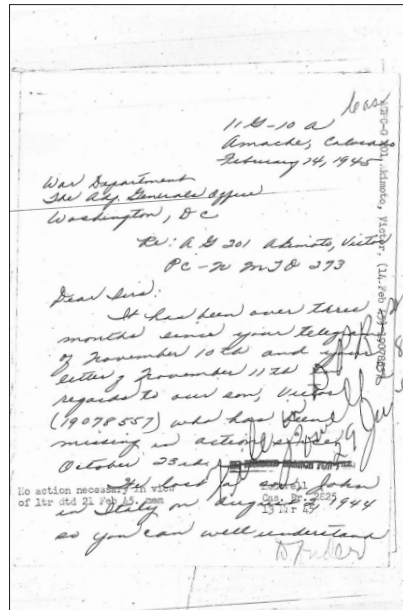 Case
11G-10A
Amache, Colorado
February 14, 1945
War Department
The Adj. Generals Office
Washington, DC
Re: AG 201 Akimoto, Victor
PC-N MTO 273
Dear Sirs:
It has been over three
months since your telegram
of November 10th and your
letter of November 11th in
regards to our son, Victor
(19078557) who has been
missing in action since
October 23rd.
We lost our son, John
in Italy on August 2, 1944
so you can well understand
No action necessary in view
of ltr dtd 21 Feb 45.
Cas. Br. 2825
AG 201 Akimoto, Victor, (14 Feb 45) 19078557